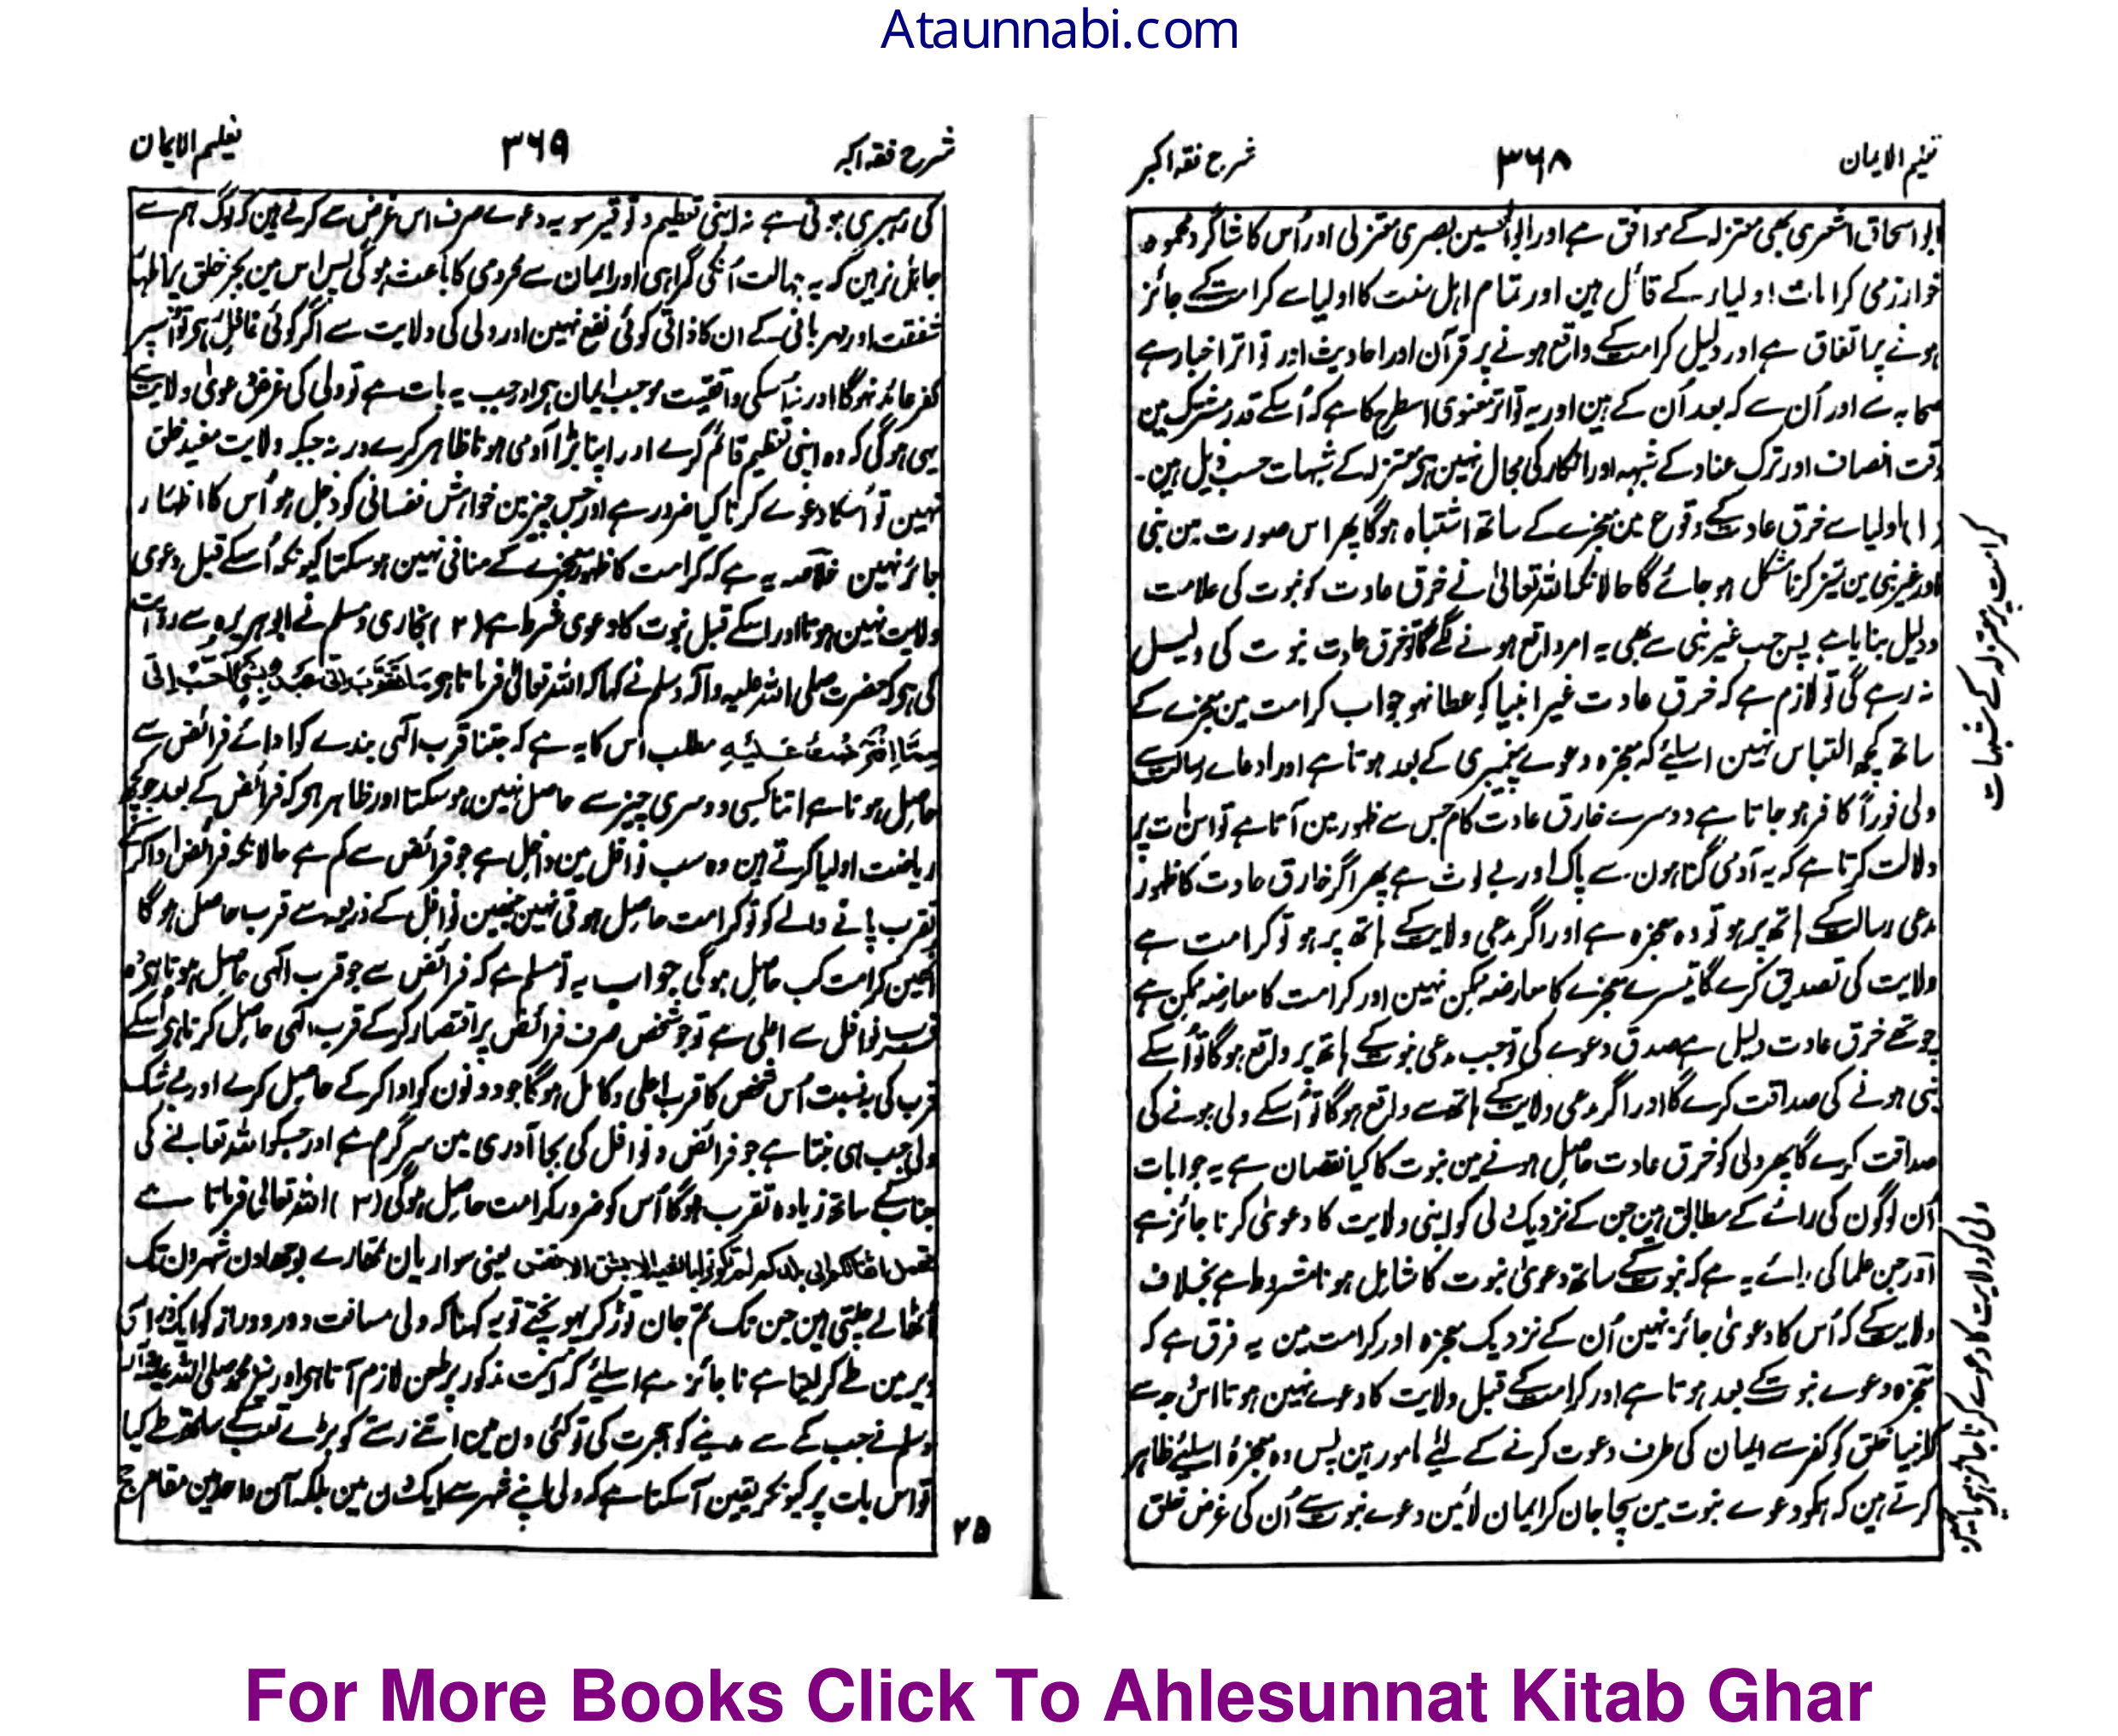 Ataunnabi.com
تعلیم الایمان ۳۶۸ شرح فقہ اکبر
ابو اسحاق اشعری بھی معتزلہ کے موافق ہے اور ابو الحسین بصری معتزلی اور اُس کا شاگرد محمود
خوارزمی کرامات اولیاء کے قائل ہین اور تمام اہل سنت کا اولیا سے کرامت کے جائز
ہونے پر اتفاق ہے اور دلیل کرامت کے واقع ہونے پر قرآن اور احادیث اور تواتر اخبار ہے
صحابہ سے اور اُن سے کہ بعد اُن کے ہین اور یہ تواتر معنوی اسطرح کا ہے کہ اُسکے قدر مشترک مین
وقت انصاف اور ترک عناد کے شبہہ اور انکار کی مجال نہین ہے معتزلہ کے شبہات حسب ذیل ہین۔
(۱) اولیا سے خرق عادت کے وقوع مین معجزے کے ساتھ اشتباہ ہوگا پھر اس صورت مین نبی
اور غیر نبی مین تمیز کرنا مشکل ہو جائے گا حالانکہ اللہ تعالیٰ نے خرق عادت کو نبوت کی علامت
ودلیل بنایا ہے پس جب غیر نبی سے بھی یہ امر واقع ہونے لگے گا تو خرق عادت نبوت کی دلیل
نہ رہے گی تو لازم ہے کہ خرق عادت غیر انبیا کو عطا نہو جواب کرامت مین معجزے کے
ساتھ کچھ التباس نہین اسلیے کہ معجزہ دعوے پیغمبری کے بعد ہوتا ہے اور ادعاے رسالت سے
ولی فوراً کافر ہو جاتا ہے دوسرے خارق عادت کام جس سے ظہور مین آتا ہے تو اس بات پر
دلالت کرتا ہے کہ یہ آدمی گناہون سے پاک اور بے لوث ہے پھر اگر خارق عادت کا ظہور
مدعی رسالت کے ہاتھ پر ہو تو وہ معجزہ ہے اور اگر مدعی ولایت کے ہاتھ پر ہو تو کرامت ہے
ولایت کی تصدیق کرے گا تیسرے معجزے کا معارضہ ممکن نہین اور کرامت کا معارضہ ممکن ہے
چوتھے خرق عادت دلیل ہے صدق دعوے کی تو جب مدعی نبوت کے ہاتھ پر واقع ہوگا تو اُسکے
نبی ہونے کی صداقت کرے گا اور اگر مدعی ولایت کے ہاتھ سے واقع ہوگا تو اُسکے ولی ہونے کی
صداقت کرے گا پھر ولی کو خرق عادت حاصل ہونے مین نبوت کا کیا نقصان ہے یہ جوابات
اُن لوگون کی رائے کے مطابق ہین جن کے نزدیک ولی کو اپنی ولایت کا دعویٰ کرنا جائز ہے
اور جن علما کی رائے یہ ہے کہ نبوت کے ساتھ دعویٰ نبوت کا شامل ہونا مشروط ہے بخلاف
ولایت کے کہ اُس کا دعویٰ جائز نہین اُن کے نزدیک معجزہ اور کرامت مین یہ فرق ہے کہ
معجزہ دعوے نبوت کے بعد ہوتا ہے اور کرامت کے قبل ولایت کا دعوے نہین ہوتا اس وجہ سے
کہ انبیا خلق کو کفر سے ایمان کی طرف دعوت کرنے کے لیے مامور ہین پس وہ معجزہ اسلیے ظاہر
کرتے ہین کہ ہمکو دعوے نبوت مین سچا جان کر ایمان لائین دعوے نبوت سے اُن کی غرض خلق
کرامت پر معتزلہ کے شبہات
ولی کو ولایت کا دعوے کرنا جائز ہے یا نہین
تعلیم الایمان ۳۶۹ شرح فقہ اکبر
کی رہبری ہوتی ہے نہ اپنی تعظیم و توقیر سو یہ دعوے صرف اس غرض سے کرتے ہین کہ لوگ ہم سے
جاہل نرہین کہ یہ جہالت اُنکی گمراہی اور ایمان سے محرومی کا باعث ہوگی پس اس مین بجز خلق پر اظہار
شفقت اور مہربانی کے ان کا ذاتی کوئی نفع نہین اور ولی کی ولایت سے اگر کوئی غافل رہے تو اُسپر
کفر عائد نہوگا اور نہ اُسکی واقفیت موجب ایمان ہے اور جب یہ بات ہے تو ولی کی غرض دعویٰ ولایت سے
یہی ہوگی کہ وہ اپنی تعظیم قائم کرے اور اپنا بڑا آدمی ہونا ظاہر کرے ورنہ جبکہ ولایت مفید خلق
نہین تو اُسکا دعوے کرنا کیا ضرور ہے اور جس چیز مین خواہش نفسانی کو دخل ہو اُس کا اظہار
جائز نہین خلاصہ یہ ہے کہ کرامت کا ظہور معجزے کے منافی نہین ہو سکتا کیونکہ اُسکے قبل دعوی
ولایت نہین ہوتا اور اسکے قبل نبوت کا دعوی شرط ہے (۲) بخاری و مسلم نے ابو ہریرہ سے روایت
کی ہے کہ حضرت صلی اللہ علیہ وآلہ وسلم نے کہا کہ اللہ تعالیٰ فرماتا ہے مَا تَقَرَّبَ اِلَیَّ عَبْدِیْ بِشَیْءٍ اَحَبَّ اِلَیَّ
مِمَّا افْتَرَضْتُ عَلَیْہِ مطلب اس کا یہ ہے کہ جتنا قرب الٰہی بندے کو اداے فرائض سے
حاصل ہوتا ہے اتنا کسی دوسری چیز سے حاصل نہین ہو سکتا اور ظاہر ہے کہ فرائض کے بعد جو کچھ
ریاضت اولیا کرتے ہین وہ سب نوافل مین داخل ہے جو فرائض سے کم ہے حالانکہ فرائض ادا کرکے
تقرب پانے والے کو تو کرامت حاصل ہوتی نہین جنھین نوافل کے ذریعہ سے قرب حاصل ہوگا
اُنھین کرامت کب حاصل ہوگی جواب یہ تو مسلم ہے کہ فرائض سے جو قرب الٰہی حاصل ہوتا ہے وہ
قرب نوافل سے اعلی ہے تو جو شخص صرف فرائض پر اقتصار کرکے قرب الٰہی حاصل کرتا ہے اُسکے
قرب کی بہ نسبت اُس شخص کا قرب اعلی و کامل ہوگا جو دونون کو ادا کرکے حاصل کرے اور بے شک
ولی جب ہی بنتا ہے جو فرائض و نوافل کی بجا آوری مین سرگرم ہے اور جسکو اللہ تعالیٰ کی
جناب کے ساتھ زیادہ تقرب ہوگا اُس کو ضرور کرامت حاصل ہوگی (۳) اللہ تعالی فرماتا ہے
یعنی سواریان تمھارے بوجھ اون شہرون تک
اُٹھا لے چلتی ہین جن تک تم جان توڑ کر پہونچتے تو یہ کہنا کہ ولی مسافت دور و دراز کو ایک ذراسی
دیر مین طے کر لیتا ہے نا جائز ہے اسلیے کہ آیت مذکور پر طعن لازم آتا ہے اور نیز محمد صلی اللہ علیہ وآلہ
وسلم نے جب مکے سے مدینے کو ہجرت کی تو کئی دن مین اتنے رستے کو بڑے تعب کے ساتھ طے کیا
تو اس بات پر کیونکر یقین آسکتا ہے کہ ولی اپنے شہر سے ایک دن مین بلکہ آن واحد مین مقام حج
۲۵
For More Books Click To Ahlesunnat Kitab Ghar